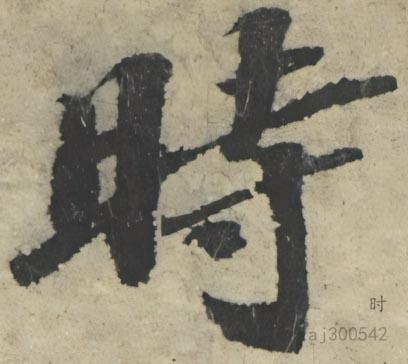 時
时
taj300542